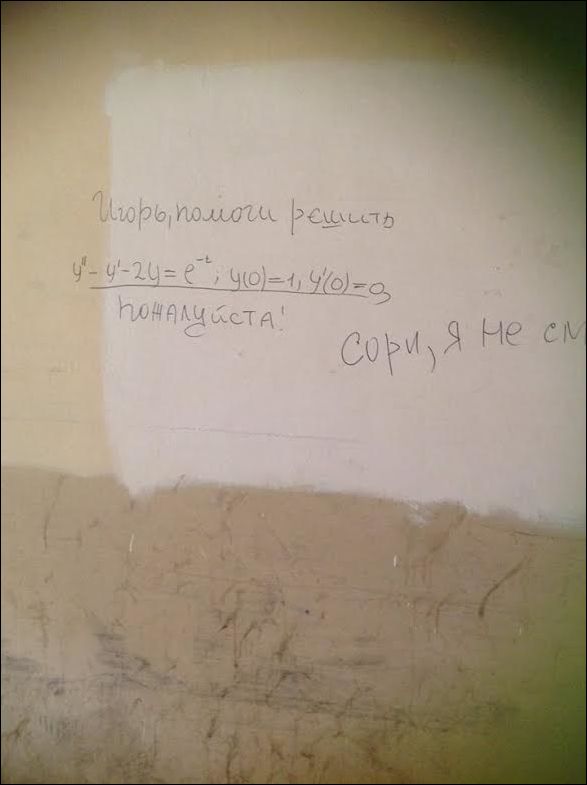 Игорь, помоги решить
y'' - y' - 2y = e⁻ᵗ; y(0)=1, y'(0)=0
пожалуйста!
Сори, я не см